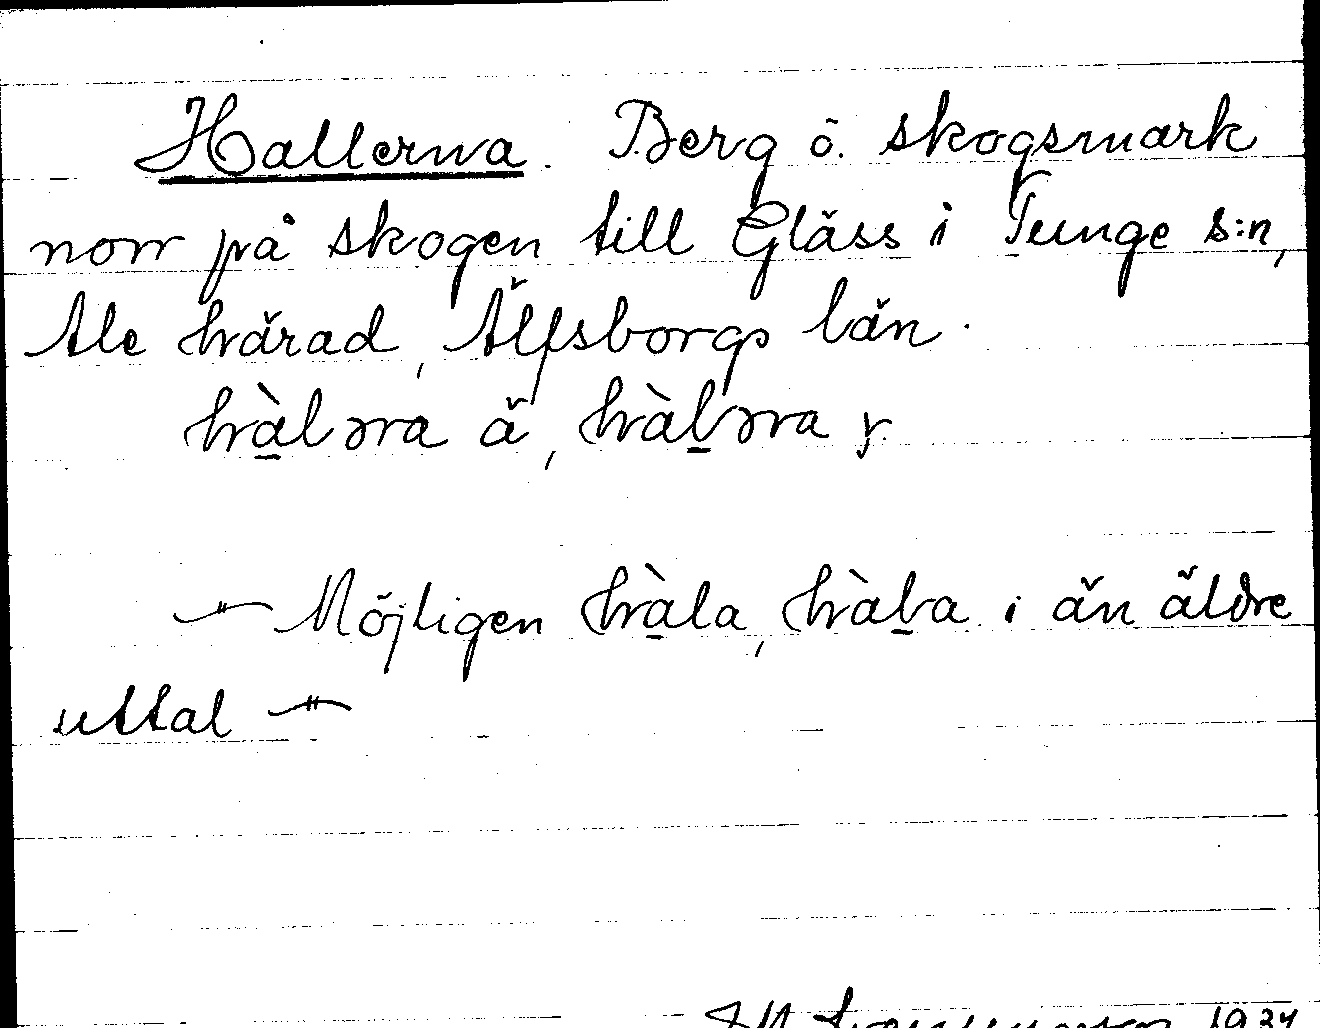 Hallerna. Berg o. skogsmark
norr på skogen till Gläss i Tunge s:n,
Ale härad, Älfsborgs län.
hàlnna ä, hàlnna y.
Möjligen hàla, hàla i än äldre
uttal
1934